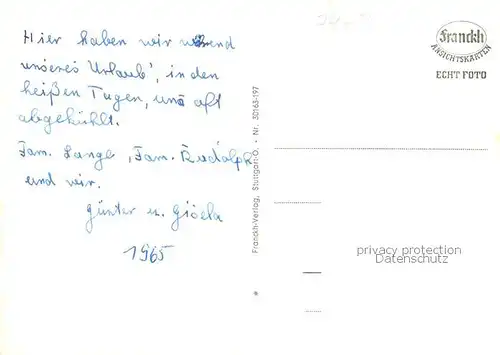 Hier haben wir wärend
unseres Urlaub', in den
heißen Tagen, uns oft
abgekühlt.
Fam. Lange, Fam. Rudolph
und wir.
Günter u. Gisela
1965
Franckh-Verlag, Stuttgart-O. - Nr. 30163-197
Franckh
ANSICHTSKARTEN
ECHT FOTO
privacy protection
Datenschutz